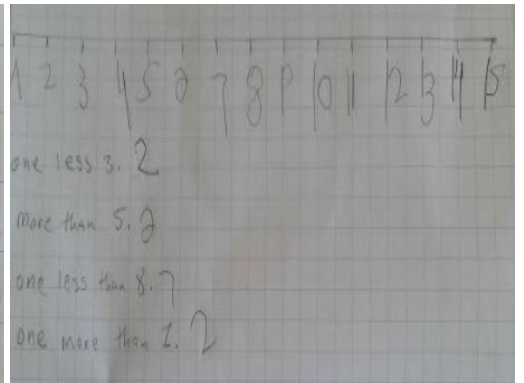 1 2 3 4 5 6 7 8 9 10 11 12 13 14 15
one less 3. 2
more than 5. 6
one less than 8. 7
one more than 1. 2